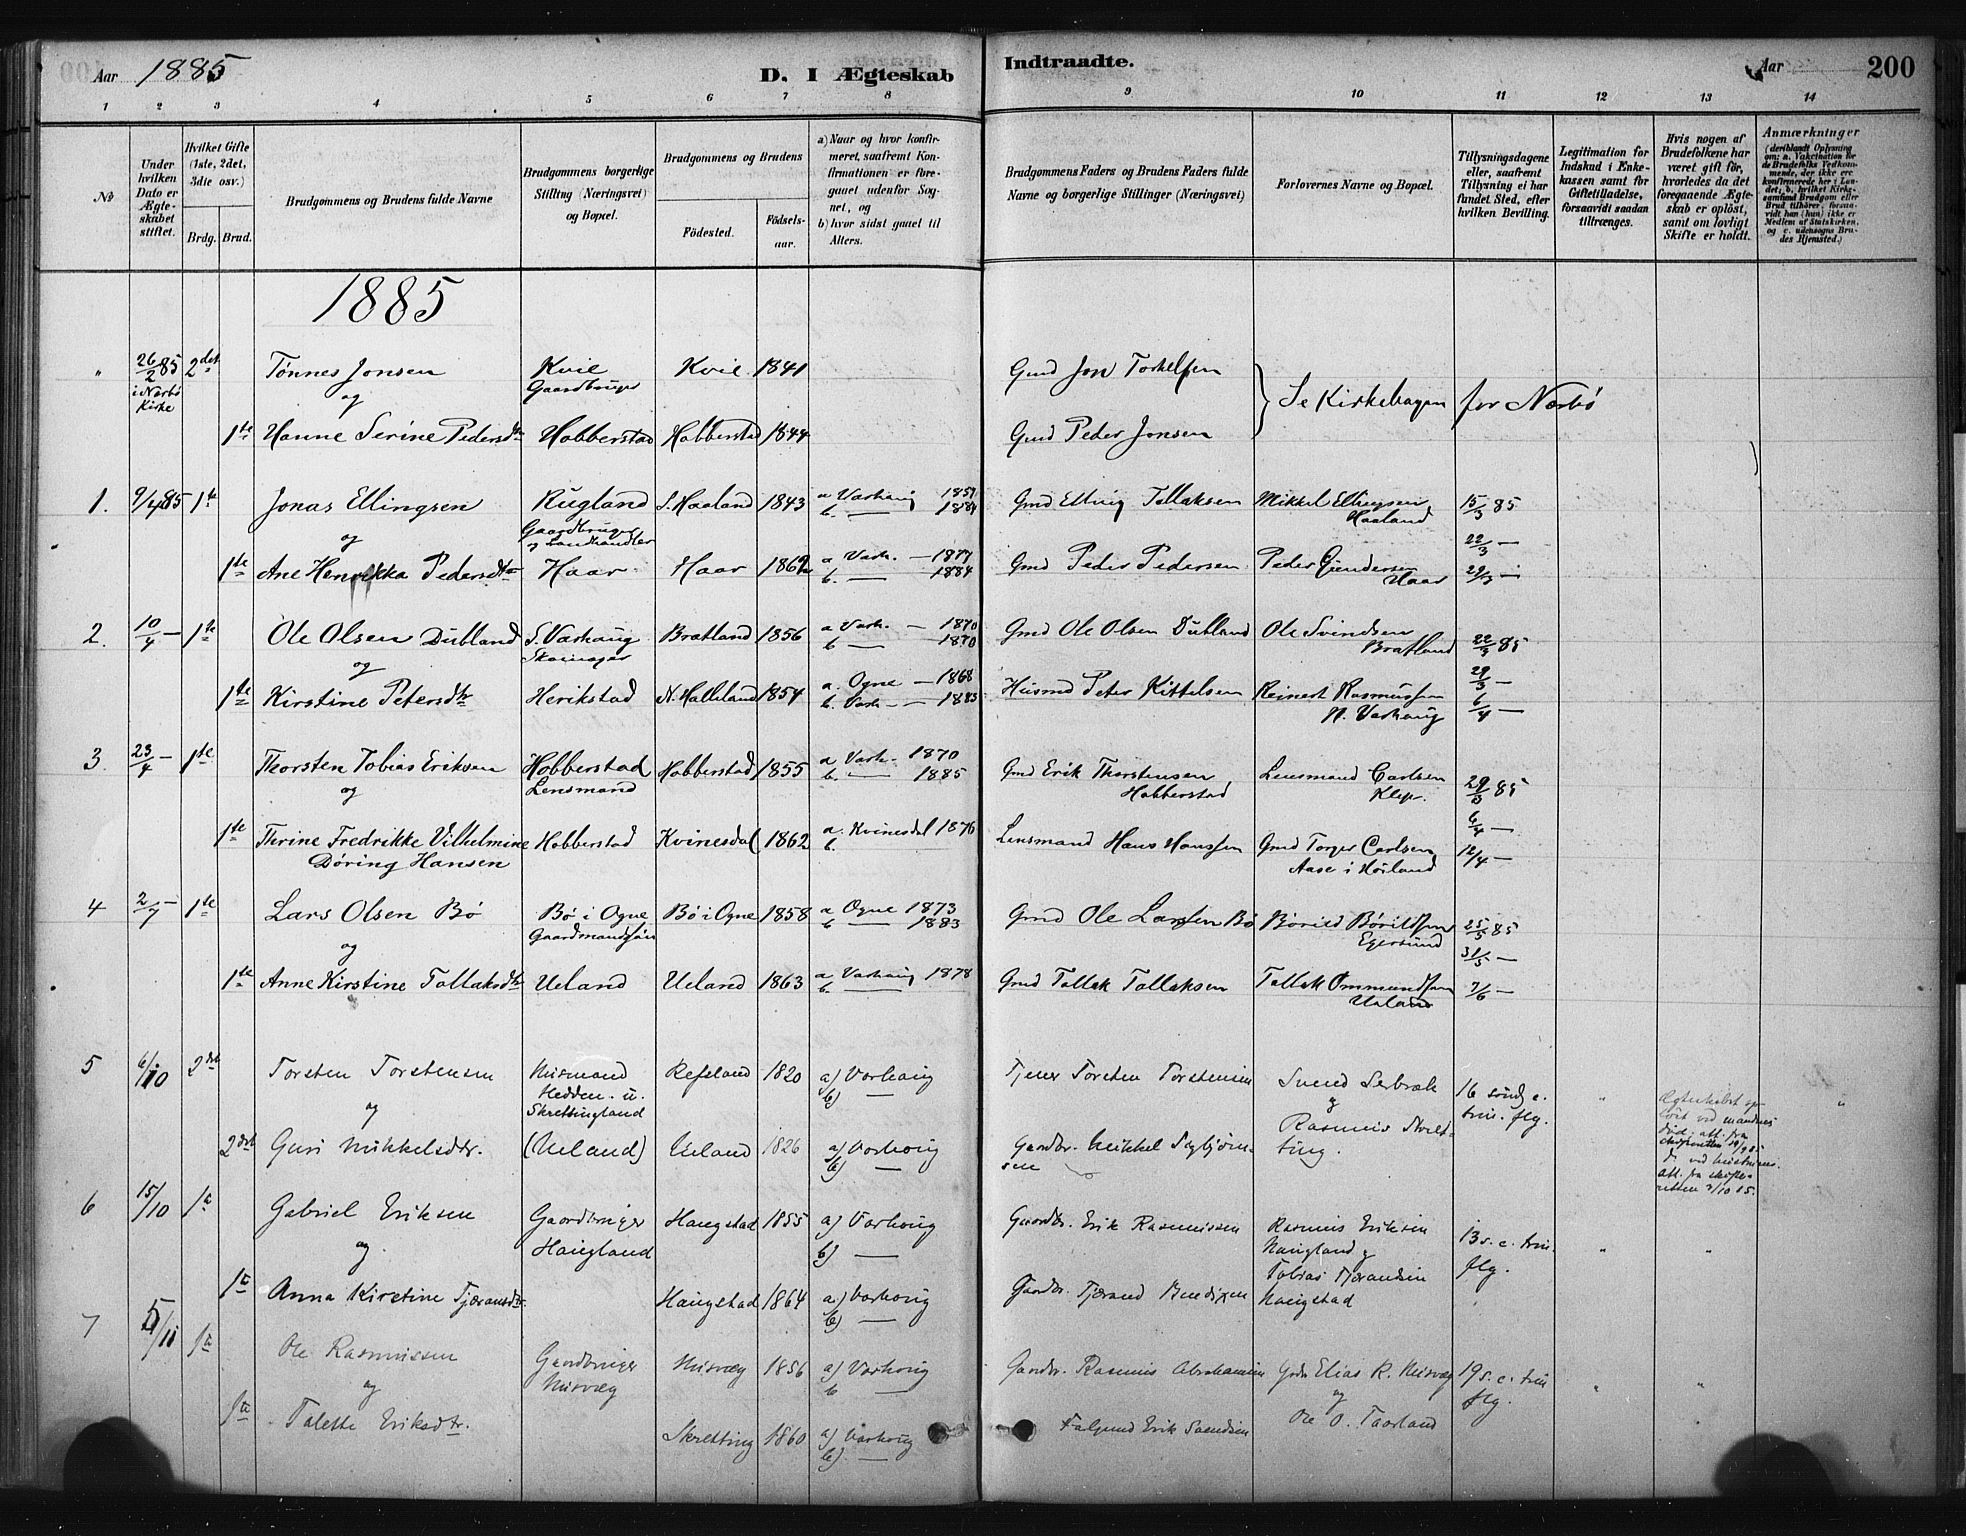 Aar 1885 D. I Ægteskab Indtraadte. Aar 200
1 2 3 4 5 6 7 8 9 10 11 12 13 14
No
Under hvilken Dato er Ægteskabet stiftet.
Hvilket Gifte (1ste, 2det, 3die osv.)
Brdg. Brud.
Brudgommens og Brudens fulde Navne
Brudgommens borgerlige Stilling (Næringsvei) og Bopæl.
Brudgommens og Brudens
Födested. Födsels-aar.
a) Naar og hvor konfirmeret, saafremt Konfirmationen er foregaaet udenfor Sognet, og
b) hvor sidst gaaet til Alters.
Brudgommens Faders og Brudens Faders fulde Navne og borgerlige Stillinger (Næringsvei)
Forlovernes Navne og Bopæl.
Tillysningsdagene eller, saafremt Tillysning ei har fundet Sted, efter hvilken Bevilling.
Legitimation for Indskud i Enkekassen samt for Giftetilladelse, forsaavidt saadan tiltrænges.
Hvis nogen af Brudefolkene har været gift för, hvorledes da det foregaaende Ægteskab er oplöst, samt om lovligt Skifte er holdt.
Anmærkninger (deriblandt Oplysning om: a. Vakcination for de Brudefolks Vedkommende, der ikke ere konfirmerede her i Landet; b. hvilket Kirkesamfund Brudgom eller Brud tilhörer, forsaavidt han (hun) ikke er Medlem af Statskirken, og c. udensogns Brudes Hjemsted.)
1885
" 26/2 85 2det Tønnes Jonsen Kvie Kvie 1841 Gmd Jon Torkelsen
i Nærbø Kirke og Gaardbruger Se Kirkebogen for Nærbø
1ste Hanne Serine Pedersdtr Hobberstad Hobberstad 1844 Gmd Peder Jonsen
1. 9/4 85 1ste Jonas Ellingsen Rugland S. Haaland 1843 a Varhaug 1859 b. — 1884 Gmd Elling Tollaksen Mikkel Ellingsen Haaland 15/3 85
og Gaardbruger og Landhandler 22/3 —
1ste Ane Henrikka Pedersdtr Haar Haar 1862 a Varh. — 1877 b. — 1884 Gmd Peder Pedersen Peder Gundersen Haar 29/3 —
2. 10/4 — 1ste Ole Olsen Dubland S. Varhaug Bratland 1856 a Varh. — 1870 b — 1870 Gmd Ole Olsen Dubland Ole Svindsen Bratland 22/3 85
og Skomager 29/3 —
1ste Kirstine Petersdtr Herikstad N. Halleland 1854 a. Ogne — 1868 b. Varh. — 1885 Husmd Peter Kittelsen Reinert Rasmussen N. Varhaug 6/4 —
3. 23/4 — 1ste Thorsten Tobias Eriksen Hobberstad Hobberstad 1855 a Varh. 1870 b. — 1885 Gmd Erik Thorstensen Hobberstad Lensmand Carlsen Klep. 29/3 85
og Lensmand 6/4 —
1ste Thrine Fredrikke Vilhelmine Døring Hansen Hobberstad Kvinesdal 1862 a. Kvinesdal 1876 b. Lensmand Hans Hanssen Gmd Torger Carlsen Aase i Hörland 12/4 —
4 2/7 — 1ste Lars Olsen Bø Bø i Ogne Bø i Ogne 1858 a Ogne 1873 b — 1883 Gmd Ole Larssen Bø Børild Børildssen Egersund 25/5 85
og Gaardmandssøn 31/5 —
1ste Anne Kirstine Tollaksdtr Ueland Ueland 1863 a Varhaug 1878 b. — Gmd Tollak Tollaksen Tollak Ommundssen Ueland 7/6 —
5 6/10 2det Torsten Torstensen Husmand Hedden. u. Skrettingland Refsland 1820 a) Varhaug b) — Tjener Torsten Torstensen Svend Serbræk 16 sönd. e. trin. flg. "
og og Rasmus Skretting.
2det Guri Mikkelsdtr. (Ueland) Ueland 1826 a) Varhaug b) — Gaardbr. Mikkel Sigbjörnsen
Ægteskabet opløst ved mandens död. att. fra skifteretten
6 15/10 1ste Gabriel Eriksen Gaardbruger Haugland Haugstad 1855 a) Varhaug b) — Gaardbr. Erik Rasmussen Rasmus Eriksen Haugland og 13 s. e. trin. flg. " "
og
1ste Anna Kirstine Tjæransdtr. Haugstad 1864 a) Varhaug b) — Gaardbr. Tjærand Bendixen Tobias Tjærandsen Haugstad
7 5/11 1ste Ole Rasmussen Gaardbruger Husvæg Husvæg 1856 a) Varhaug b — Gaardbr. Rasmus Abrahamsen Gbr. Elias R. Husvæg 19 s. e. trin flg. " "
og og
1ste Talette Eriksdtr. Skretting 1860 a) Varhaug b) — Erik Svendsen Ole O. Taarland